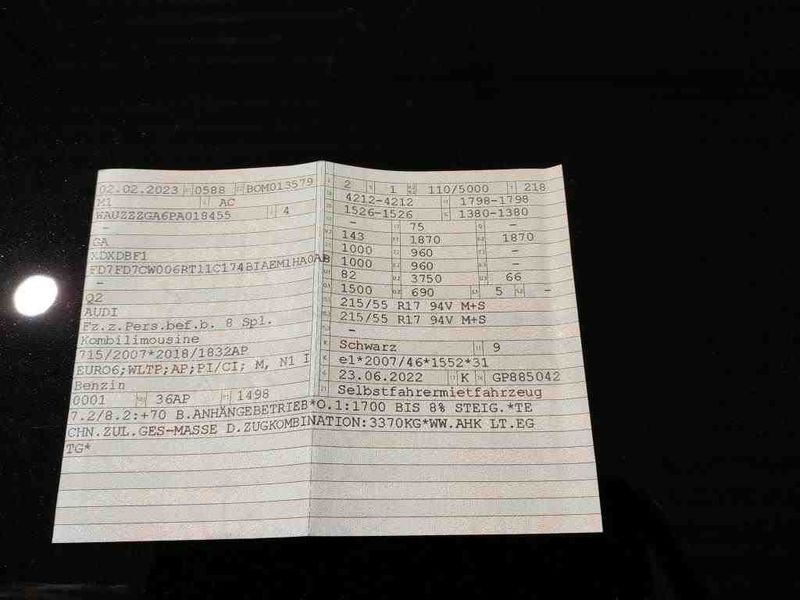 02.02.2023 0588 BOM013579
M1 AC
WAUZZZGA6PA018455 4
-
GA
XDXDBF1
FD7FD7CW006RT11C174BIAEM1HA0AB
-
Q2
AUDI
Fz.z.Pers.bef.b. 8 Spl.
Kombilimousine
715/2007*2018/1832AP
EURO6;WLTP;AP;PI/CI; M, N1 I
Benzin
0001 36AP 1498
2 1 110/5000 218
4212-4212 1798-1798
1526-1526 1380-1380
- 75 -
143 1870 1870
1000 960 -
1000 960 -
82 3750 66
1500 690 5 -
215/55 R17 94V M+S
215/55 R17 94V M+S
-
Schwarz 9
e1*2007/46*1552*31
23.06.2022 K GP885042
Selbstfahrermietfahrzeug
7.2/8.2:+70 B.ANHÄNGEBETRIEB*O.1:1700 BIS 8% STEIG.*TE
CHN.ZUL.GES-MASSE D.ZUGKOMBINATION:3370KG*WW.AHK LT.EG
TG*